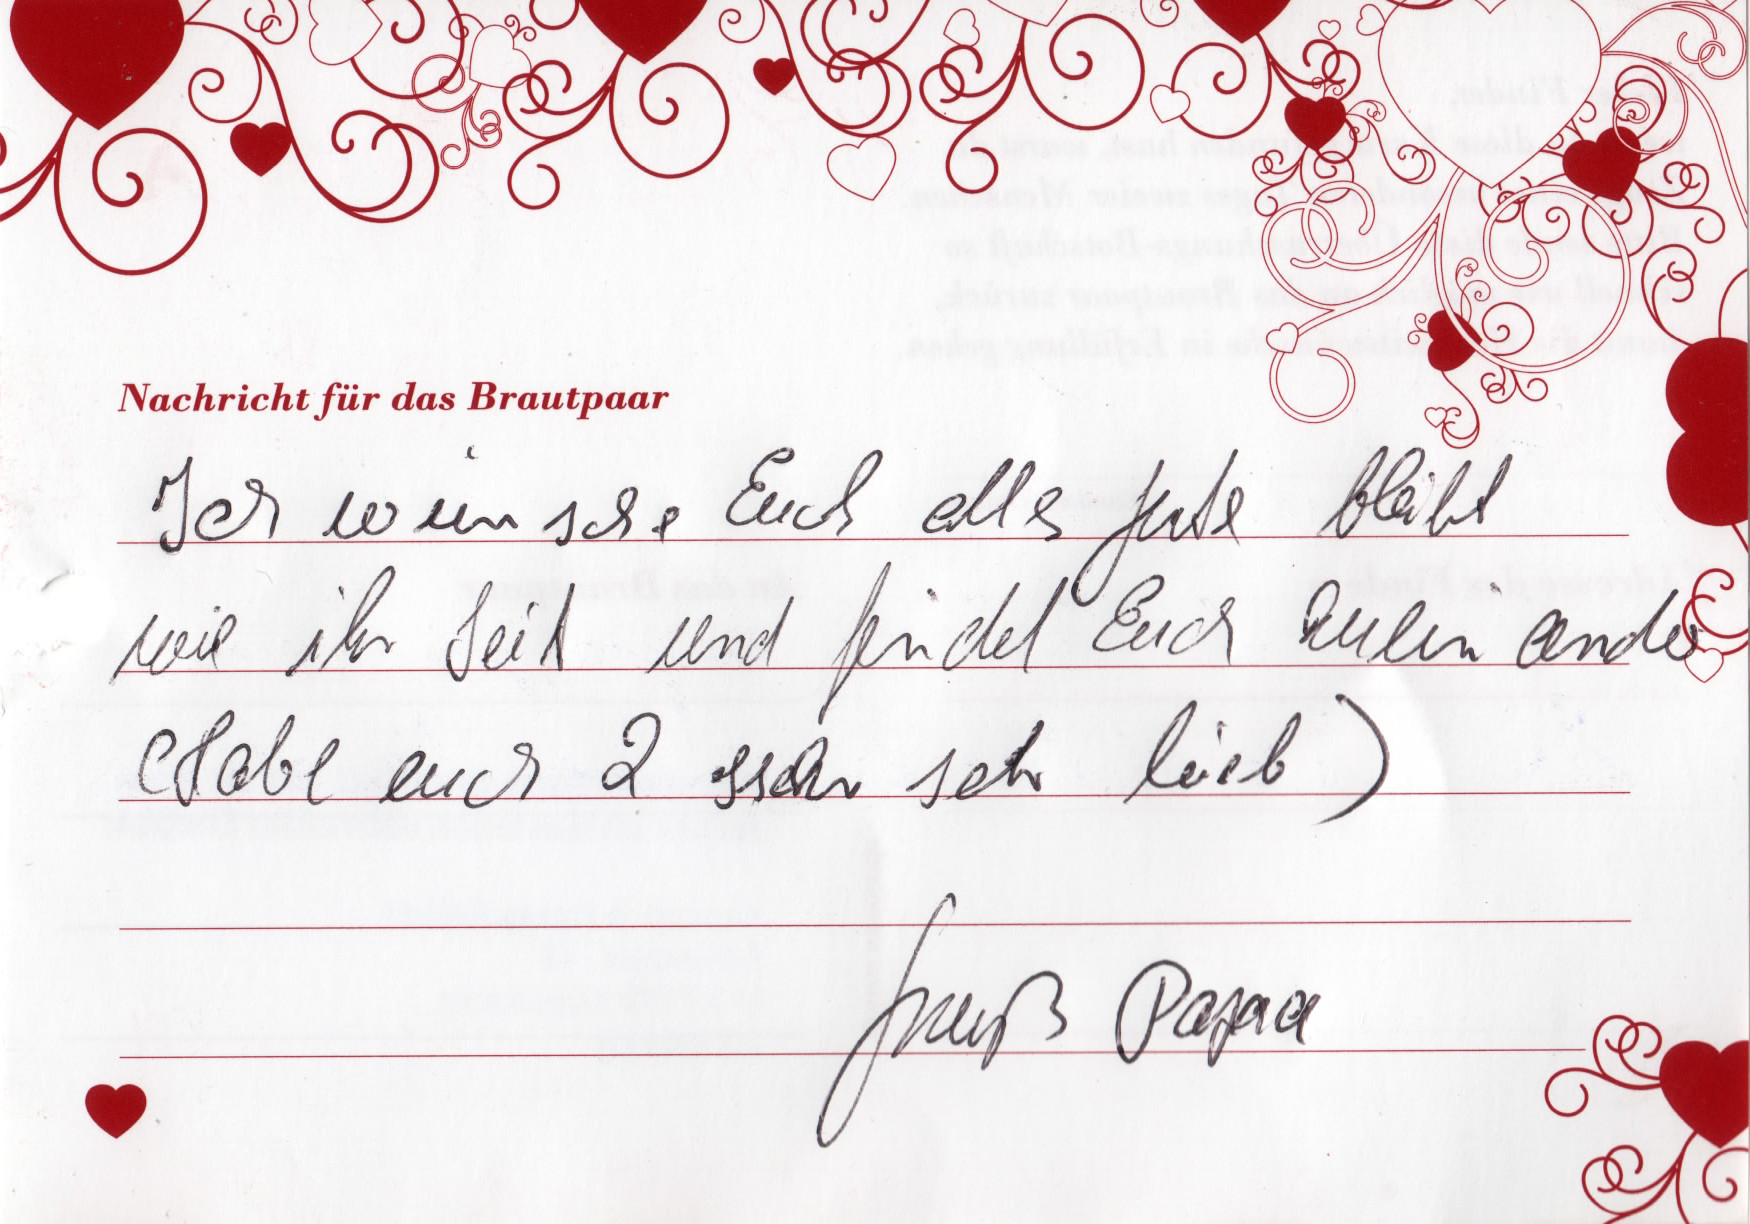 Nachricht für das Brautpaar
Ich wünsche Euch alles gute bleibt
wie ihr seit und findet Euch
(Habe euch 2 sehr lieb)
Gruß Papaa